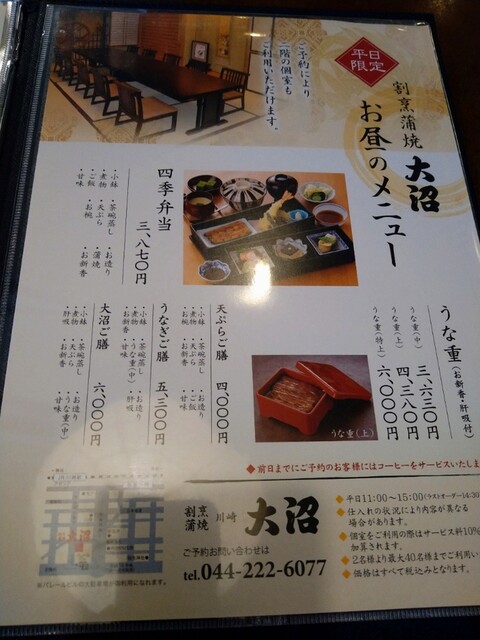 平日
限定
割烹蒲焼 大沼
お昼のメニュー
ご予約により
二階の個室も
ご利用いただけます。
四季弁当
三、八七〇円
・小鉢 ・茶碗蒸し ・お造り
・煮物 ・天ぷら ・蒲焼
・ご飯 ・お椀 ・お新香
・甘味
うな重(お新香・肝吸付)
うな重(中) 三、六三〇円
うな重(上) 四、三八〇円
うな重(特上) 六、〇〇〇円
うな重(上)
天ぷらご膳 四、〇〇〇円
・小鉢 ・茶碗蒸し ・お造り
・煮物 ・天ぷら ・ご飯
・お椀 ・お新香 ・甘味
うなぎご膳 五、三〇〇円
・小鉢 ・茶碗蒸し ・お造り
・煮物 ・うな重(中) ・肝吸
・お新香 ・甘味
大沼ご膳 六、〇〇〇円
・小鉢 ・茶碗蒸し ・お造り
・煮物 ・天ぷら ・うな重(中)
・肝吸 ・お新香 ・甘味
◆前日までにご予約のお客様にはコーヒーをサービスいたしま
割烹
蒲焼 川崎 大沼
ご予約お問い合わせは
tel.044-222-6077
◆平日11:00〜15:00(ラストオーダー14:30)
◆仕入れの状況により内容が異なる
場合があります。
◆個室をご利用の際はサービス料10%
加算されます。
◆2名様より最大40名様までご利用い
◆価格はすべて税込みとなります。
大沼
※パレールビルの大駐車場が御利用になれます。